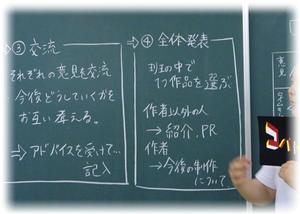 ③交流
それぞれの意見を交流
今後どうしていくかを
お互い考える。
⇒アドバイスを受けて…
記入
④全体発表
班の中で
1つ作品を選ぶ
作者以外の人
→紹介、PR
作者
→今後の制作
について